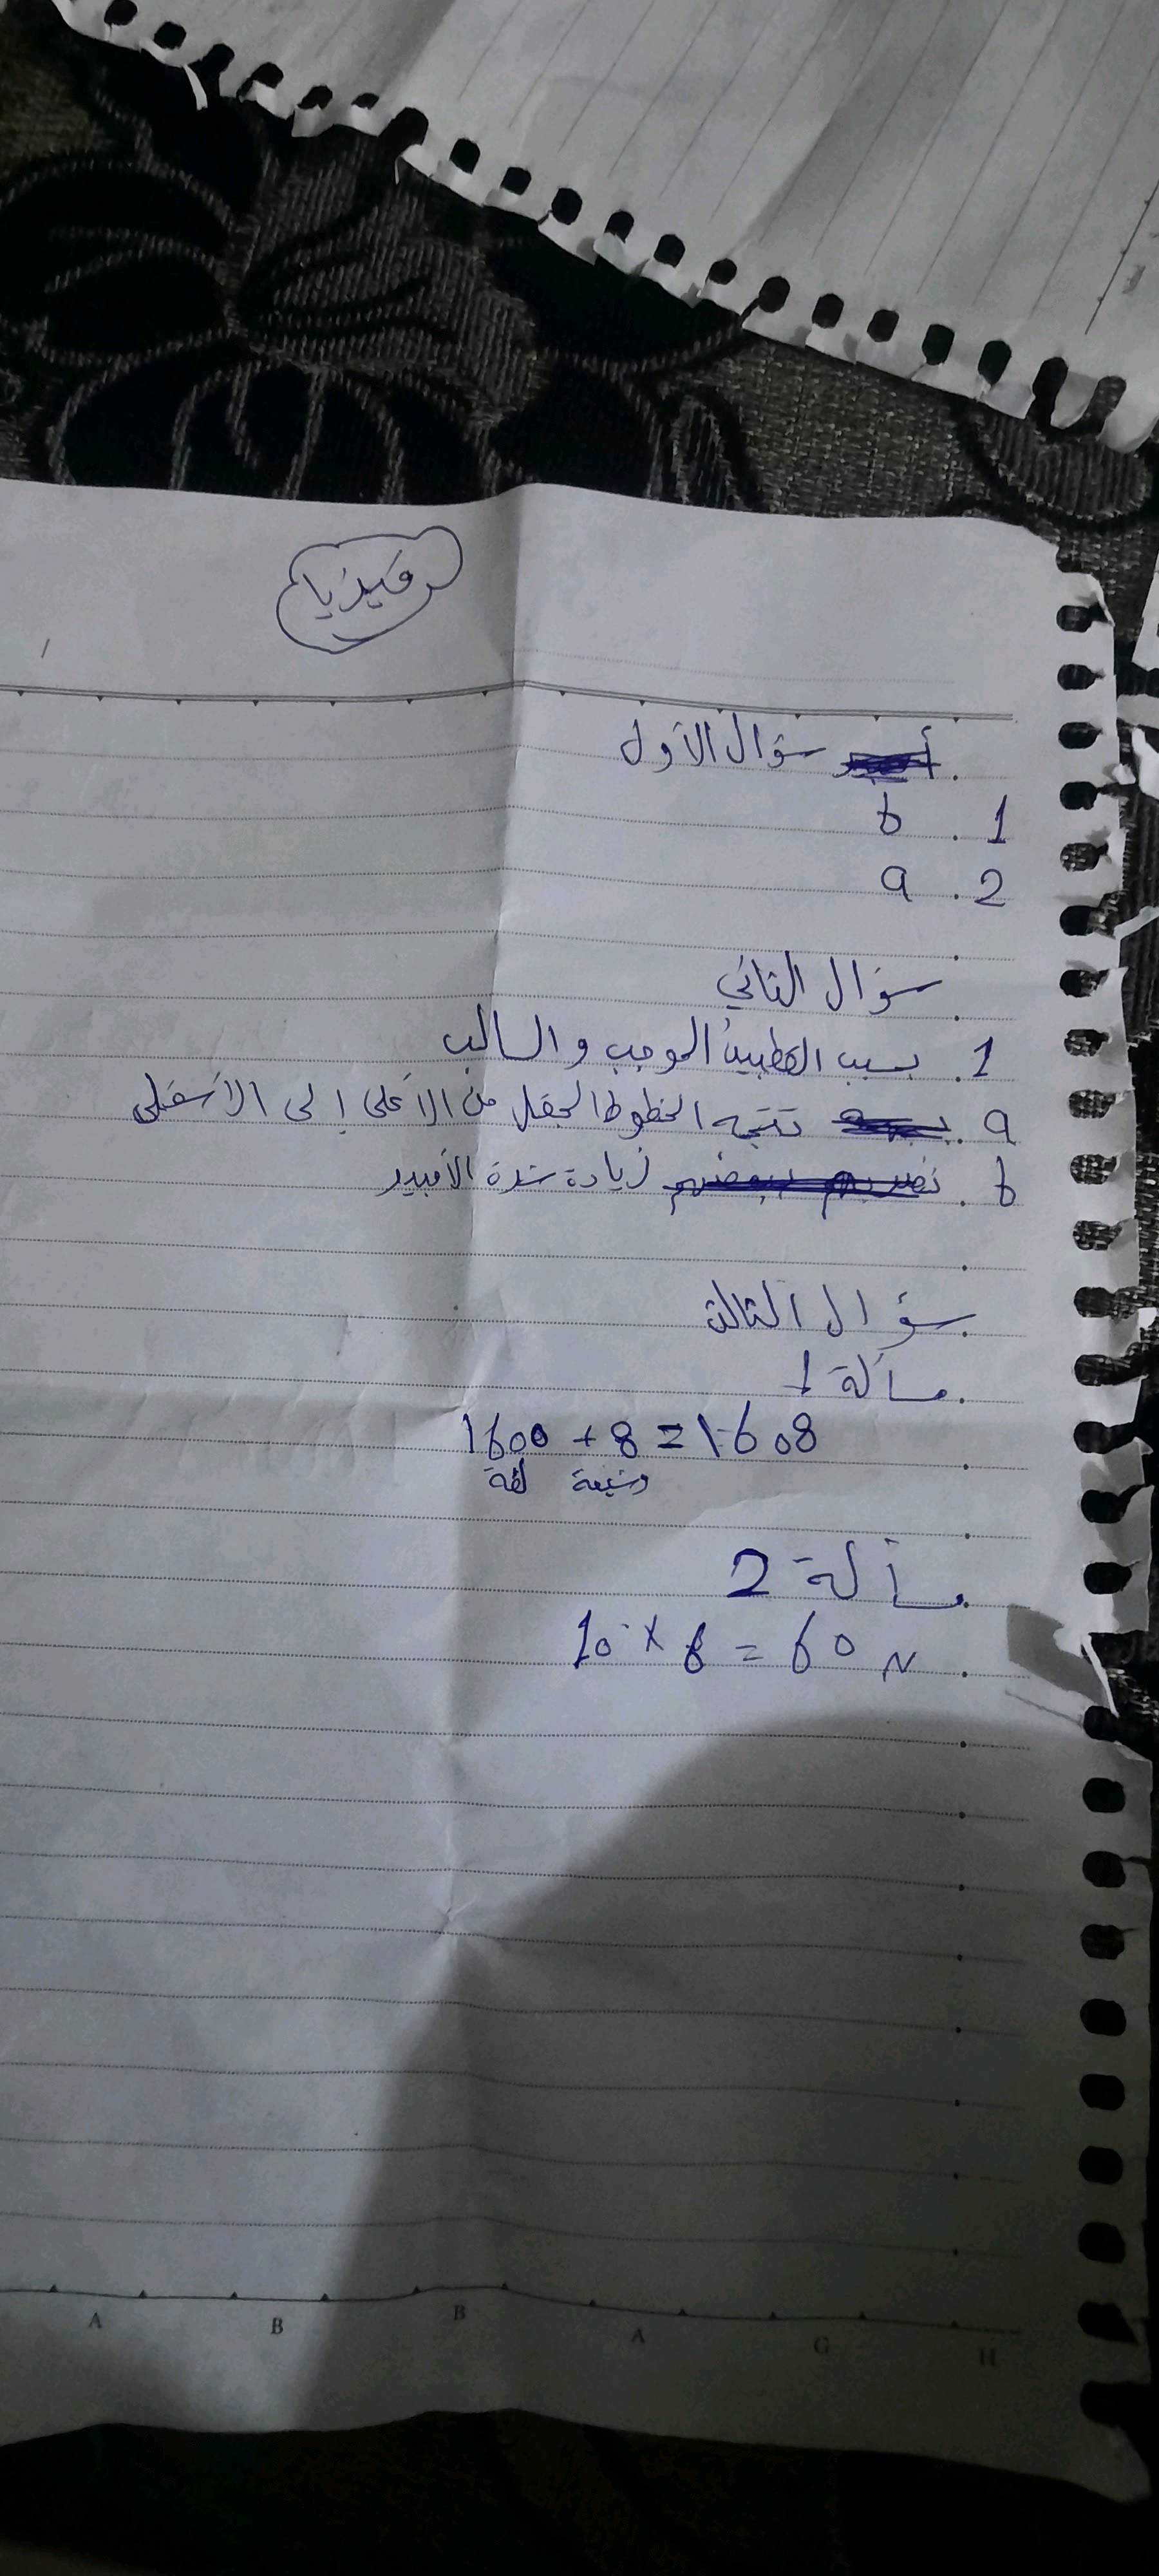 فيزيا
سؤال الأول
1. b
2. a
سؤال الثاني
1. بسبب القطبين الموجب والسالب
a. تتجه الخطوط الحقل من الأعلى إلى الأسفلى
b. زيادة شدة الأمبير
سؤال الثالث
مسألة 1
1600 + 8 = 1608
لفة وشيعة
مسألة 2
10 × 6 = 60 N
A B B A G H